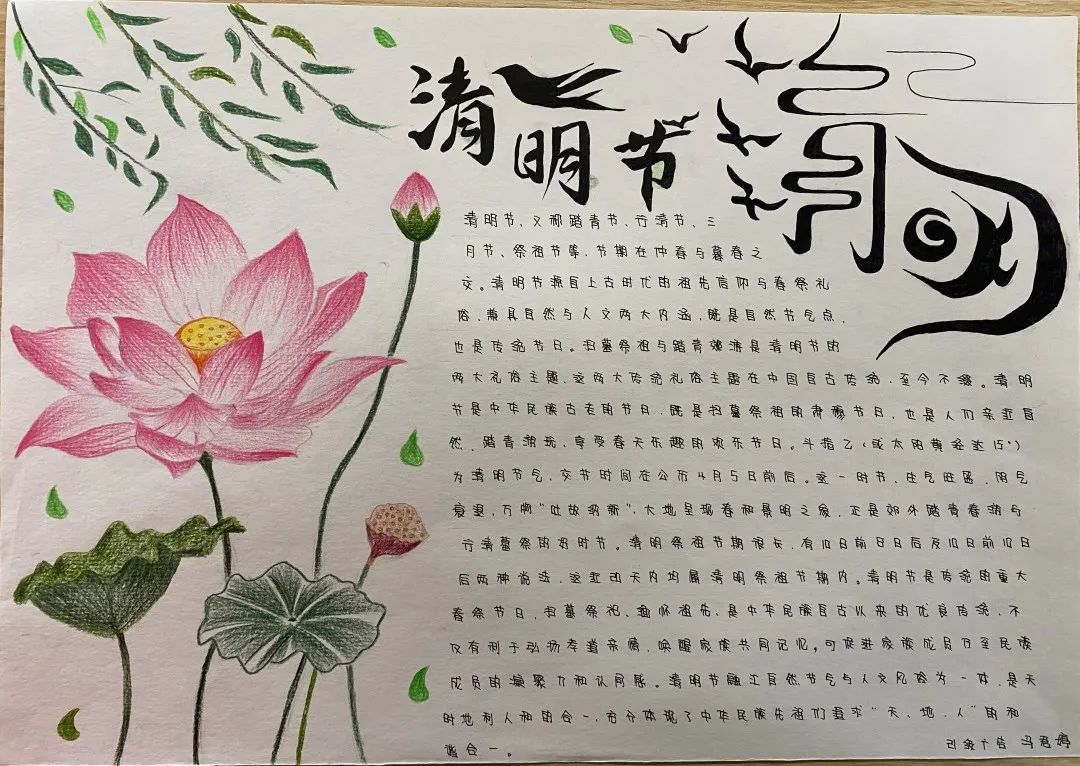 清明节
清明节、又称踏青节、行清节、三
月节、祭祖节等，节期在仲春与暮春之
交。清明节源自上古时代的祖先信仰与春祭礼
俗，兼具自然与人文两大内涵，既是自然节气点，
也是传统节日。扫墓祭祖与踏青郊游是清明节的
两大礼俗主题，这两大传统礼俗主题在中国自古传统，至今不辍。清明
节是中华民族古老的节日，既是扫墓祭祖的肃穆节日，也是人们亲近自
然、踏青游玩、享受春天乐趣的欢乐节日。斗指乙（或太阳黄经达15°）
为清明节气，交节时间在公历4月5日前后。这一时节，生气旺盛、阴气
衰退，万物“吐故纳新”，大地呈现春和景明之象，正是郊外踏青春游与
行清墓祭的好时节。清明祭祖节期很长，有10日前8日后及10日前10日
后两种说法，这近20天内均属清明祭祖节期内。清明节是传统的重大
春祭节日，扫墓祭祀、缅怀祖先，是中华民族自古以来的优良传统，不
仅有利于弘扬孝道亲情、唤醒家族共同记忆，可促进家族成员乃至民族
成员的凝聚力和认同感。清明节融汇自然节气与人文风俗为一体，是天
时地利人和的合一，充分体现了中华民族先祖们追求“天、地、人”的和
谐合一。